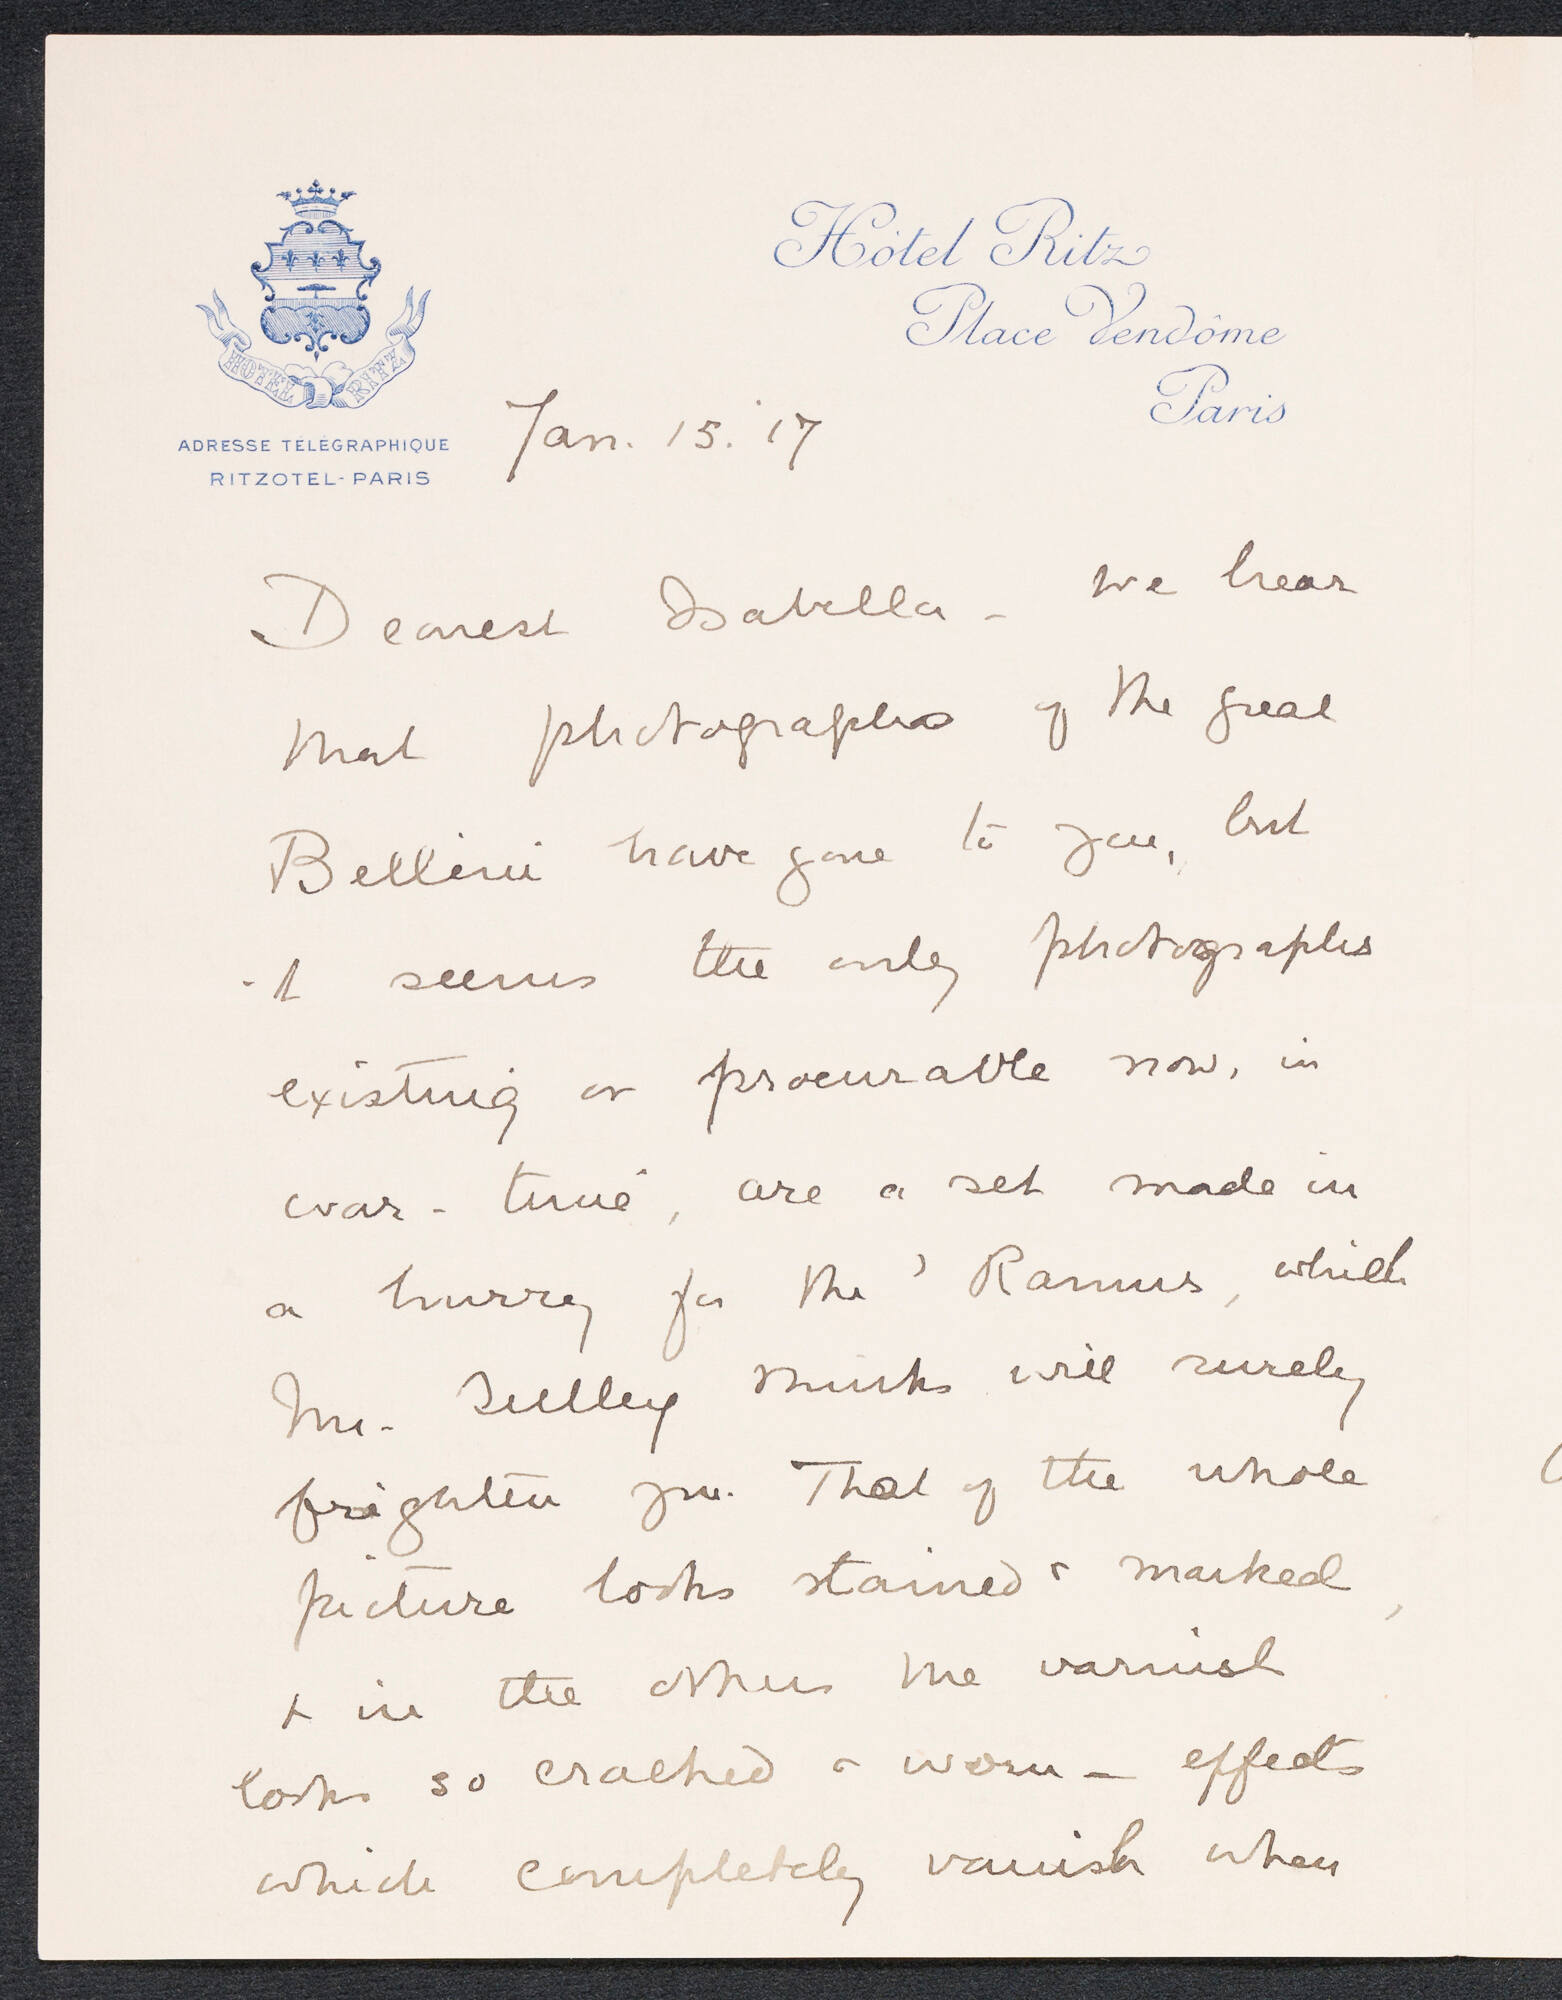 HOTEL RITZ
ADRESSE TÉLÉGRAPHIQUE
RITZOTEL-PARIS
Hôtel Ritz
Place Vendôme
Paris
Jan. 15. '17
Dearest Isabella - we hear
that photographs of the great
Bellini have gone to you, but
it seems the only photographs
existing or procurable now, in
war-time, are a set made in
a hurry for the Ramus, which
Mr. Sulley thinks will surely
frighten you. That of the whole
picture looks stained & marked,
& in the others the varnish
looks so cracked & worn - effects
which completely vanish when